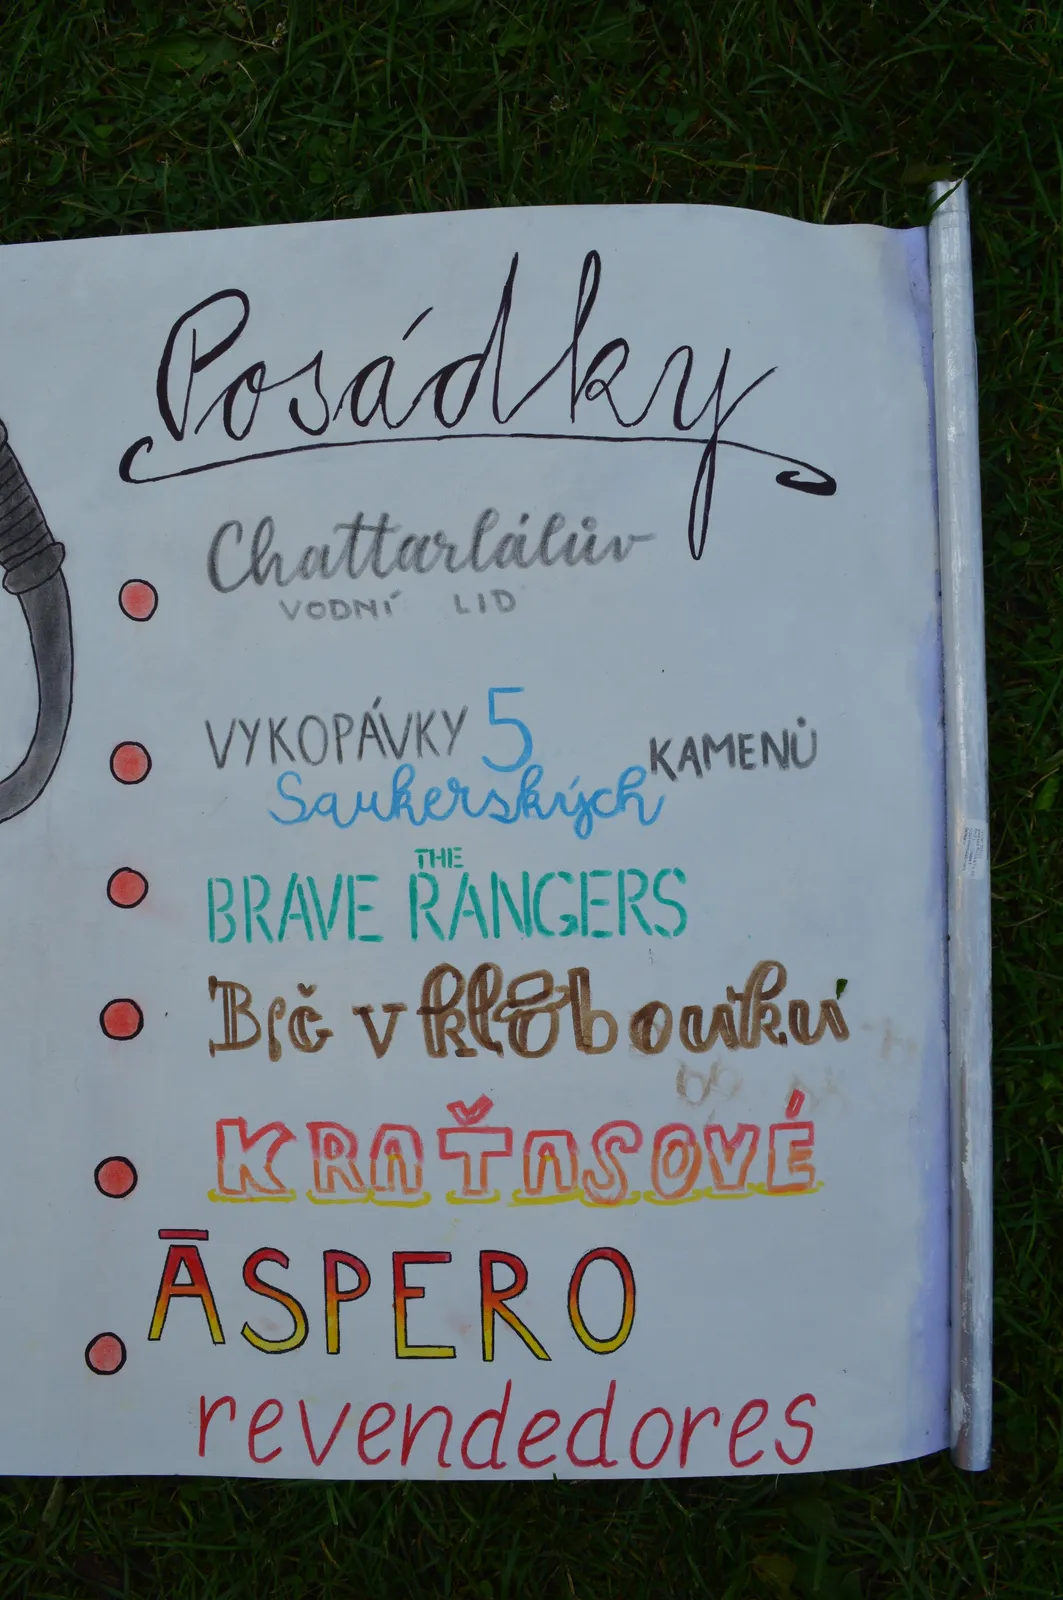 Posádky
Chattarlálův
VODNÍ LID
VYKOPÁVKY 5
Saukerských KAMENŮ
THE
BRAVE RANGERS
Brč v klobouků
KRAŤASOVÉ
ĀSPERO
revendedores